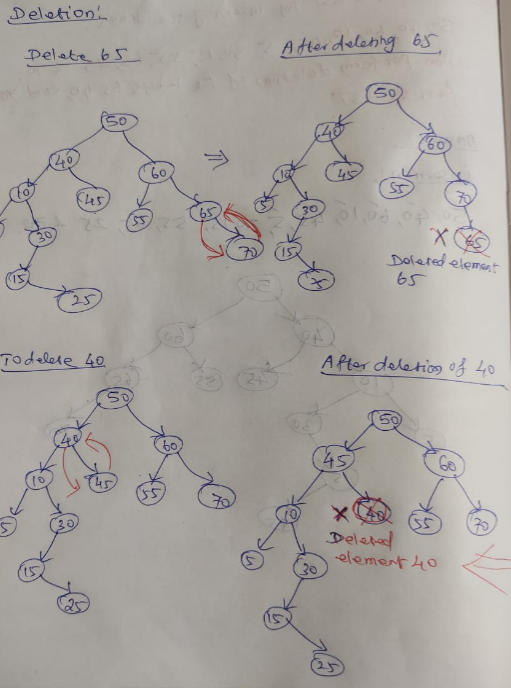 Deletion:
Delete 65
After deleting 65
50
40
60
10
45
55
65
30
70
15
25
⇒
50
40
60
10
45
55
70
5
30
X 65
15
Deleted element
65
To delete 40
After deletion of 40
50
40
60
10
45
55
70
5
30
15
25
50
45
60
10
X 40
55
70
Deleted
element 40
5
30
15
25